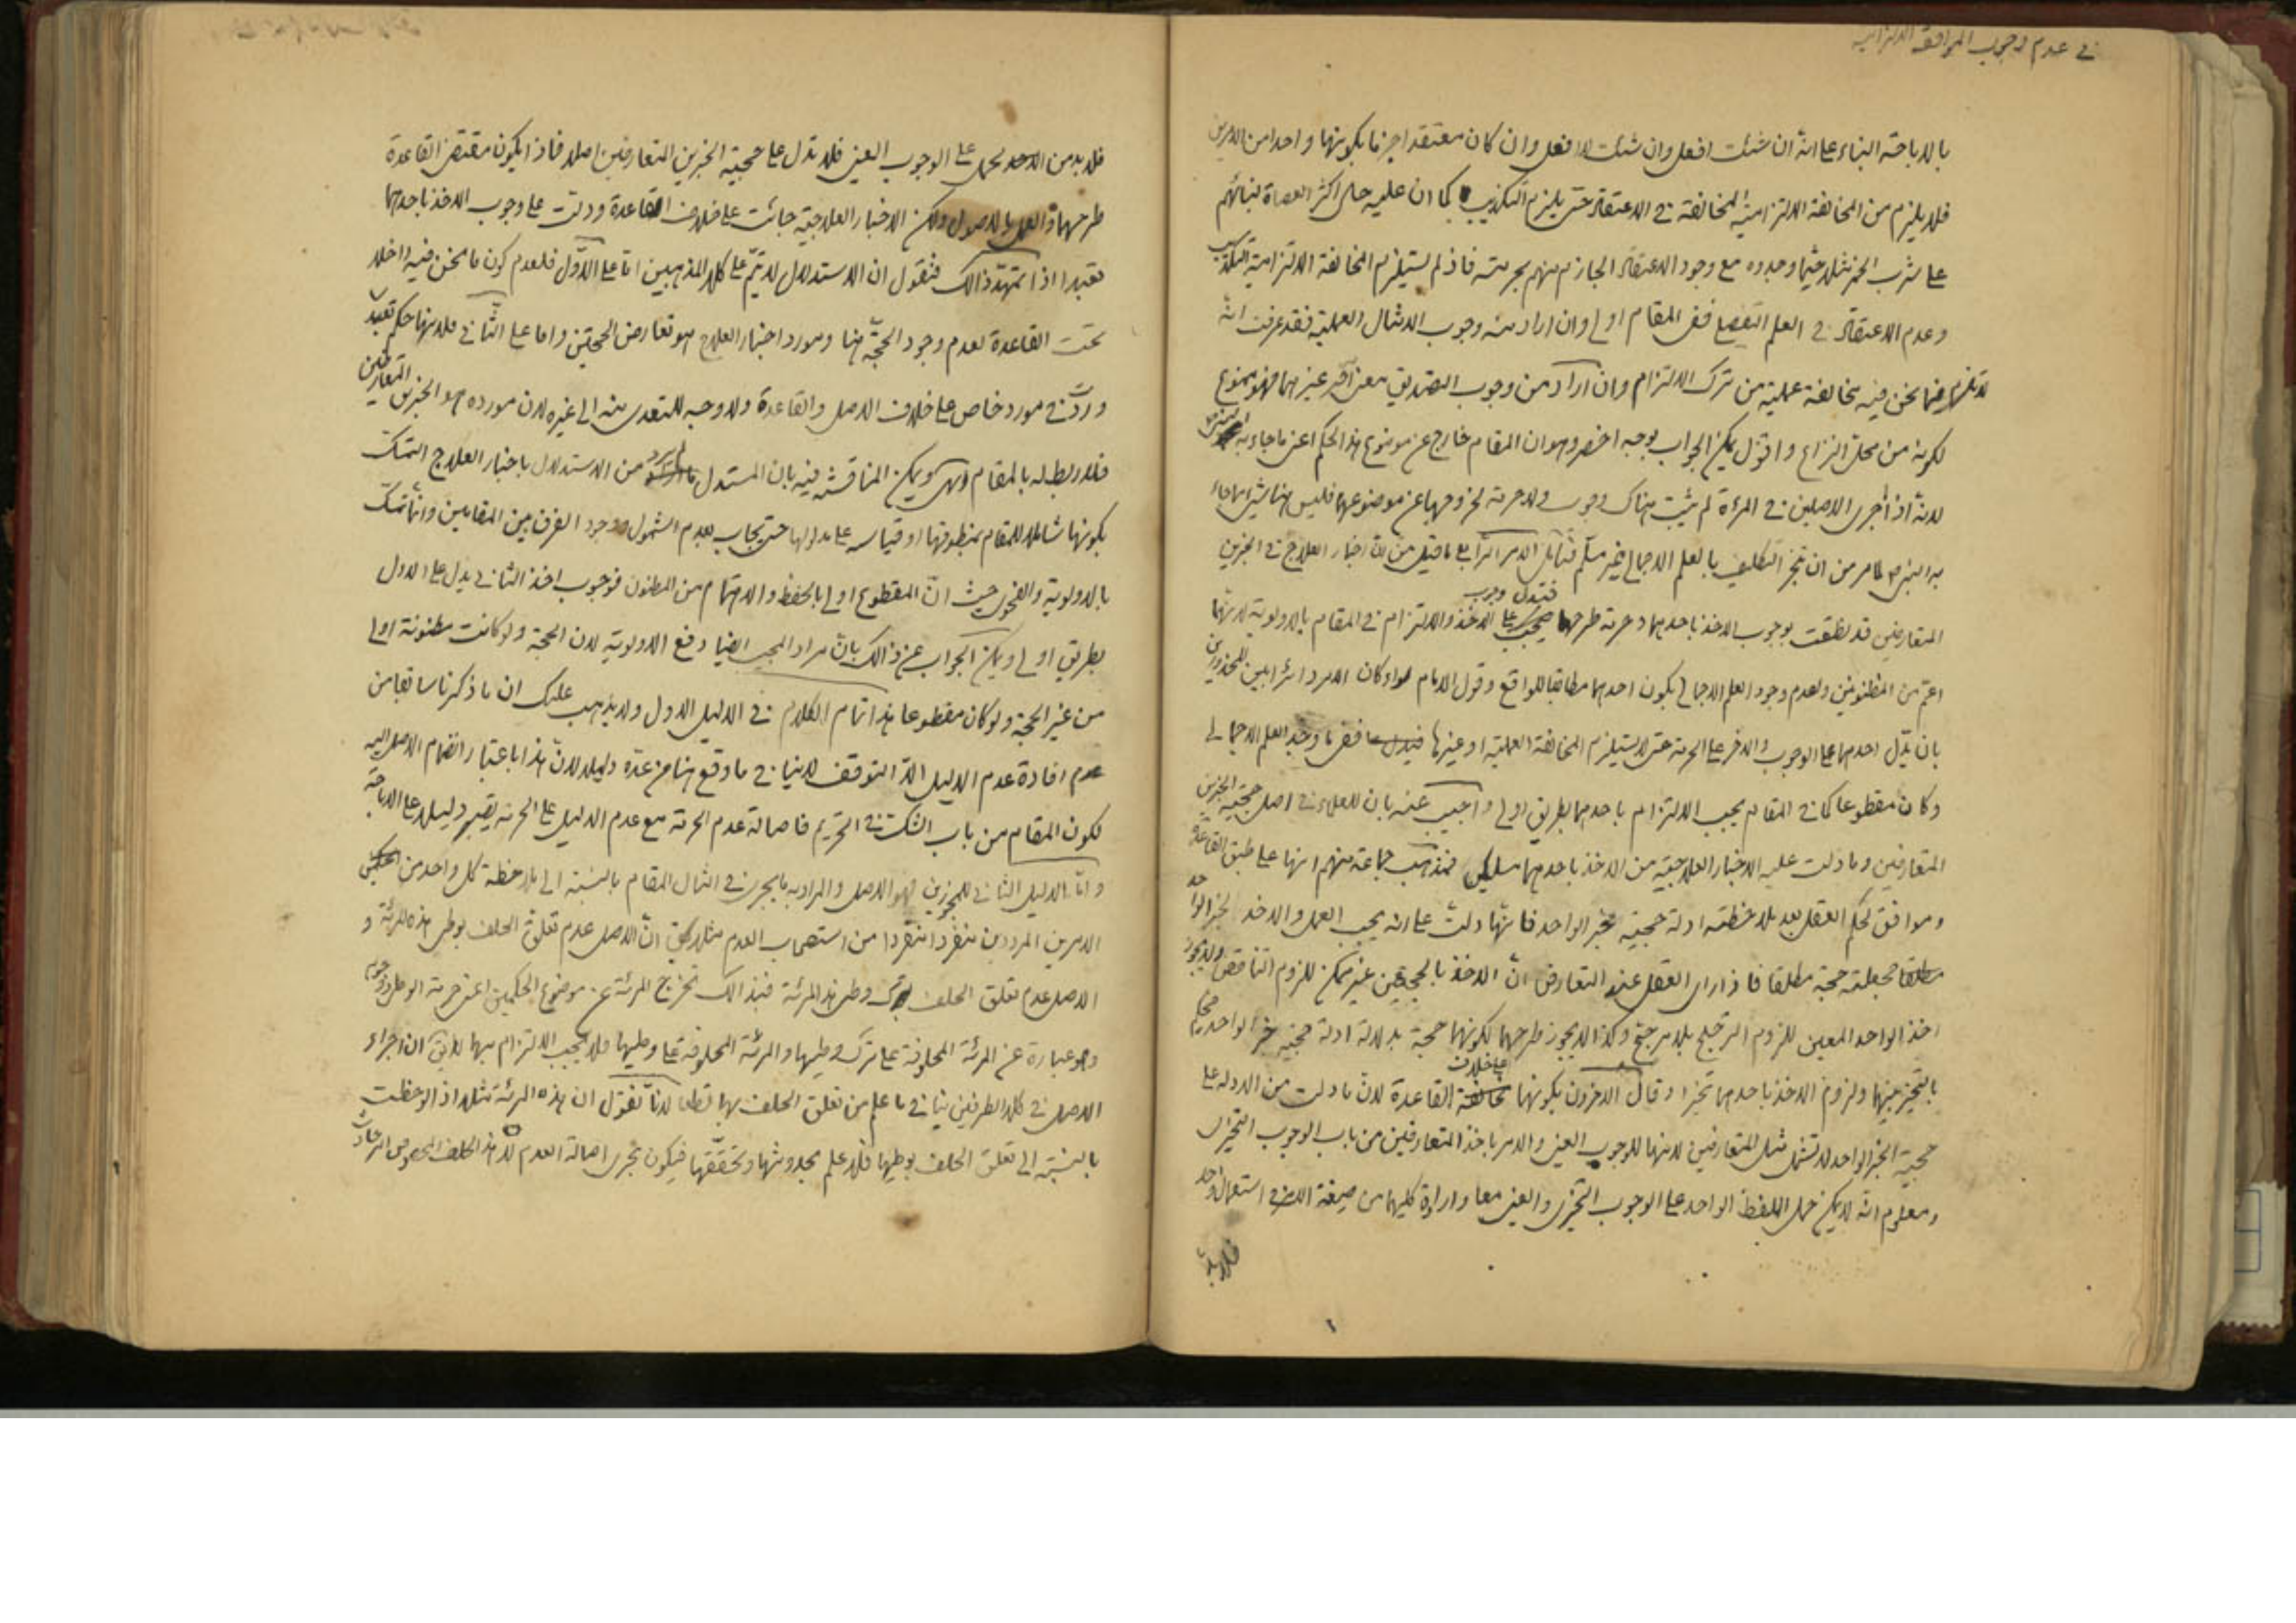 في عدم وجوب الموافقة الالتزامية
بالاباحة البناء على انه ان شئت افعل وان شئت لا افعل وان كان معتقدا جزما بكونها واحدا من الامرين
فلا يلزم من المخالفة الالتزامية المخالفة في الاعتقاد حتى يلزم التكذيب كما ان عليه حال اكثر العصاة لبنائهم
على شرب الخمر مثلا حيثما وجدوه مع وجود الاعتقاد الجازم منهم بحرمته فاذ لم يستلزم المخالفة الالتزامية التكذيب
وعدم الاعتقاد في العلم التفصيلي ففي المقام اولى وان اراد منه وجوب الامتثال العملية فقد عرفت انه
لا تلزم فيما نحن فيه مخالفة عملية من ترك الالتزام وان اراد من وجوب التصديق معنى آخر غيرهما فهو ممنوع
لكونه من محل النزاع واقول يمكن الجواب بوجه اخصر وهو ان المقام خارج عن موضوع هذا الحكم اعني ما جاء به النبي
لانه اذا أجرى الاصلين في المرءة لم يثبت هناك وجوب ولا حرمة لخروجها عن موضوعهما فليس هنا شيء مما جاء
به النبي ص لما مر من ان تنجز التكليف بالعلم الاجمالي غير مسلم فتأمل الامر الرابع ما قيل من ان اخبار العلاج في الخبرين
المتعارضين قد نطقت بوجوب الاخذ باحدهما وحرمة طرحهما فتدل وجوب الاخذ والالتزام في المقام بالاولوية لانهما
اعم من المظنونين ولعدم وجود العلم الاجمالي بكون احدهما مطابقا للواقع وقول الامام سواء كان الامر دائرا بين المحذورين
بان يدل احدهما على الوجوب والاخر على الحرمة حتى لا يستلزم المخالفة العملية او غيرها ففي ما وجد العلم الاجمالي
وكان مقطوعا كما في المقام يجب الالتزام باحدهما بطريق اولى واجيب عنه بان للعلماء في اصل حجية الخبرين
المتعارضين وما دلت عليه الاخبار العلاجية من الاخذ باحدهما مسلكين فمذهب جماعة منهم انها على طبق القاعدة
وموافق لحكم العقل بعد ملاحظة ادلة حجية خبر الواحد فانها دلت على انه يجب العمل والاخذ بخبر الواحد
مطلقا بجعلته حجة مطلقا فاذا رأى العقل عند التعارض ان الاخذ بالحجتين غير ممكن للزوم التناقض ولا يجوز
اخذ الواحد المعين للزوم الترجيح بلا مرجح وكذا لا يجوز طرحهما لكونهما حجة بدلالة ادلة حجية خبر الواحد فيحكم
بالتخيير بينهما ولزوم الاخذ باحدهما تخيرا وقال الاخرون بكونها على خلاف القاعدة لان ما دلت من الادلة على
حجية الخبر الواحد لا تشمل مثل المتعارضين لانها للوجوب العيني والامر باخذ المتعارضين من باب الوجوب التخيري
ومعلوم انه لا يمكن حمل اللفظ الواحد على الوجوب التخيري والعيني معا وارادة كليهما من صيغة الامر في استعمال واحد
فلا بد
فلا بد من الاحد يحمل على الوجوب العيني فلا تدل على حجية الخبرين المتعارضين اصلا فاذا يكون مقتضى القاعدة
طرحهما والعمل بالاصول ولكن الاخبار العلاجية جائت على خلاف القاعدة ودلت على وجوب الاخذ باحدهما
تعبدا اذا تمهد ذالك فنقول ان الاستدلال لا يتم على كلا المذهبين اما على الاول فلعدم كون ما نحن فيه داخلا
تحت القاعدة لعدم وجود الحجة هنا ومورد اخبار العلاج هو تعارض الحجتين واما على الثاني فلانها حكم تعبدي
ورد في مورد خاص على خلاف الاصل والقاعدة ولا وجه للتعدي منه الى غيره لان مورده هو الخبرين المتعارضين
فلا ربط له بالمقام انتهى ويمكن المناقشة فيه بان المستدل لم يرد من الاستدلال باخبار العلاج التمسك
بكونها شاملا للمقام بمنطوقها او قياسه على مدلولها حتى يجاب بعدم الشمول ووجود الفرق بين المقامين وانما تمسك
بالاولوية والفحوى حيث ان المقطوع اولى بالحفظ والاهتمام من المظنون فوجوب اخذ الثاني يدل على الاول
بطريق اولى ويمكن الجواب عن ذالك بان مراد المجيب ايضا دفع الاولوية لان الحجة ولو كانت مظنونة اولى
من غير الحجة ولو كان مقطوعا هذا تمام الكلام في الدليل الاول ولا يذهب عليك ان ما ذكرنا سابقا من
عدم افادة عدم الدليل الا التوقف لا ينافي ما وقع هنا من عده دليلا لان هذا باعتبار انضمام الاصل اليه
لكون المقام من باب الشك في التحريم فاصالة عدم الحرمة مع عدم الدليل على الحرمة يصير دليلا على الاباحة
واما الدليل الثاني للمجوزين فهو الاصل والمراد به ما يجري في امثال المقام بالنسبة الى ملاحظة كل واحد من الحكمين
الامرين المرددين منفردا منفردا من استصحاب العدم مثلا يقال ان الاصل عدم تعلق الحلف بوطي هذه المرئة و
الاصل عدم تعلق الحلف بترك وطي هذه المرئة فبذالك تخرج المرئة عن موضوع الحكمين اعني حرمة الوطي ووجوبه
وهو عبارة عن المرئة المحلوفة على ترك وطيها والمرئة المحلوفة على وطيها فلا يجب الالتزام بهما لا يقال ان اجراء
الاصل في كلا الطرفين ينافي ما علم من تعلق الحلف بها قطعا لانا نقول ان هذه المرئة مثلا اذا لوحظت
بالنسبة الى تعلق الحلف بوطيها فلا علم بحدوثها وتحققها فيكون مجرى اصالة العدم لان هذا الحلف المخصوص امر حادث